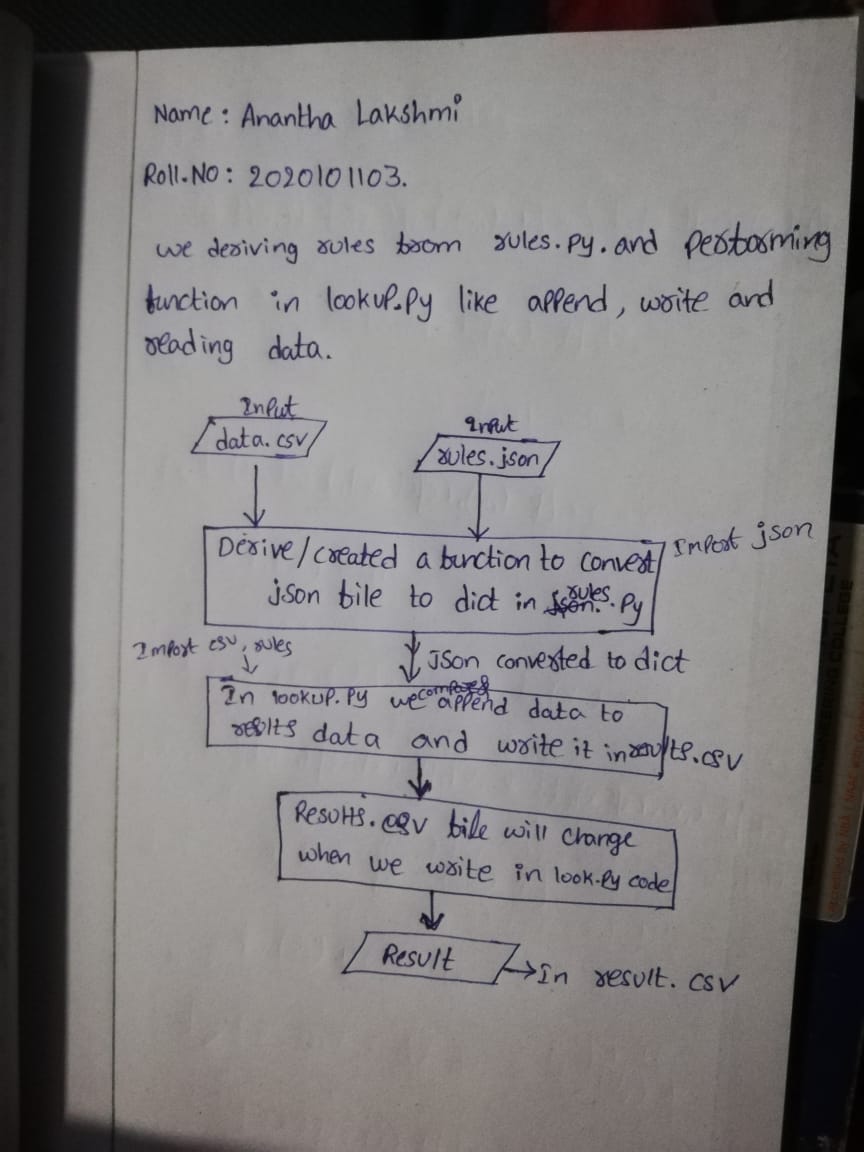 Name : Anantha Lakshmi
Roll.No : 2020101103.
we deriving rules from rules.py. and performing
function in lookup.py like append, write and
reading data.
Input
data.csv
Input
rules.json
Derive/created a function to convert
json file to dict in json. rules.py
Import json
Import csv, rules
json converted to dict
In lookup.py we compare & append data to
results data and write it in results.csv
Results.csv file will change
when we write in look.py code
Result
In result.csv